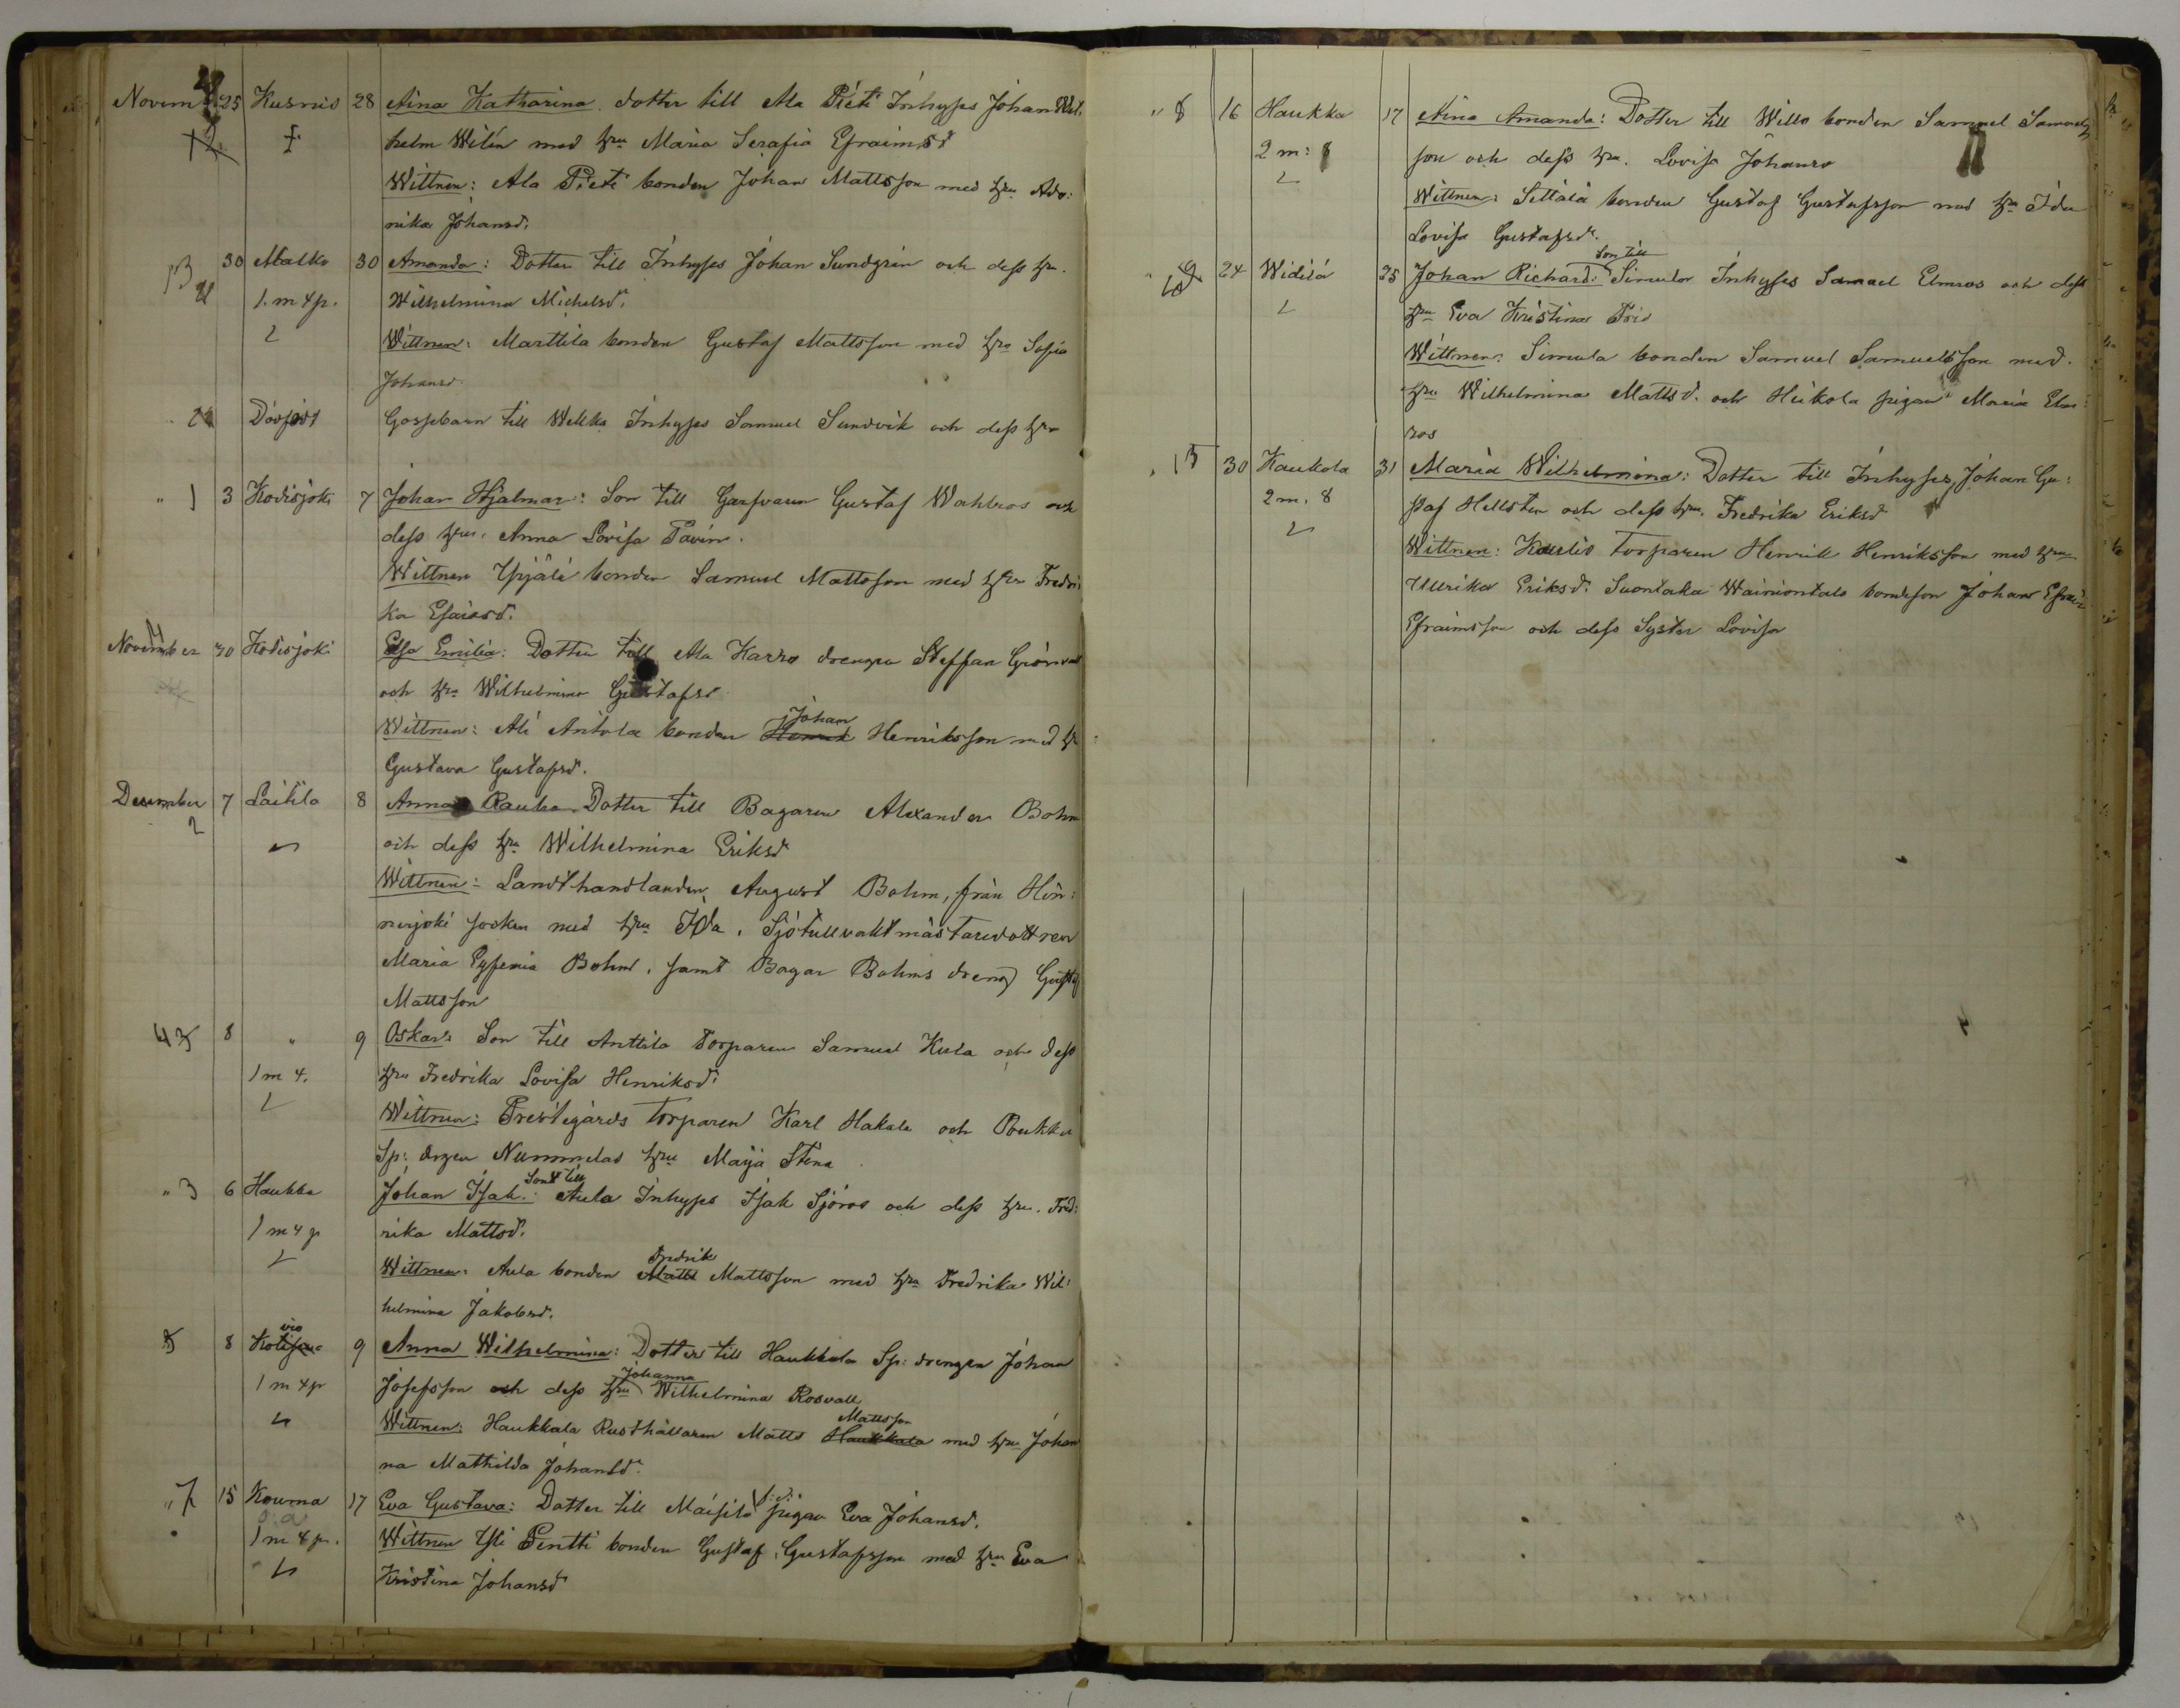 Novem 25 Kusnis 28 Aina Katharina. dotter till Ala Pieti Inhyses Johan Wil:
helm Wilén med hru Maria Serafia Efraimsd
Wittnen: Ala Pieti bonden Johan Mattsson med hru Adr:
rika Johansd.
30 Malko 30 Amanda: Dotter till Inhyses Johan Sundgrén och dess hru.
1. m 4 p. Wilhelmina Michelsd.
Wittnen: Marttila bonden Gustaf Mattsson med hru Sofia
Johansd.
Gossebarn till Welkko Inhyses Samuel Sundvik och dess hru
" 1 3 Kodisjoki 7 Johan Hjalmar: Son till Garfvaren Gustaf Wahlros och
dess hru. Anna Lovisa Pavén.
Wittnen Ypjälä bonden Samuel Mattsson med hru Fredri
ka Esaiasd.
November 30 Kodisjoki Elsa Emilia: Dotter till Ala Karro drengen Steffan Grönvall
och hru Wilhelmina Gustafsd
Wittnen: Ali Antola bonden Henrik Johan Henriksson med hru
Gustava Gustafsd.
December 7 Laitila 8 Anna Rauha. Dotter till Bagaren Alexander Bohm
2 och dess hru Wilhelmina Eriksd
Wittnen: Landthandlanden August Bohm, från Hin:
nerjoki socken med hru Ida, Sjötullvaktmästaredottren
Maria Eyfemia Bohm, samt Bagar Bohms dreng Gustaf
Mattsson
8 " 9 Oskar: Son till Anttila Torparen Samuel Kula och dess
1 m 4. hru Fredrika Lovisa Henriksd.
Wittnen: Prestegårds torparen Karl Hakala och Poukka
Sp: drgen Nummelas hru Maija Stina
" 3 6 Haukka Johan Isak: Son till Aula Inhyses Isak Sjöros och dess hru. Fred:
1 m 4 p rika Mattsd.
Wittnen: Aula bonden Matts Fredrik Mattsson med hru Fredrika Wil:
helmina Jakobsd.
5 8 9 Anna Wilhelmina: Dotter till Haukkala Sp: drengen Johan
1 m 4 p Josefsson och dess hru Johanna Wilhelmina Rosvall
Wittnen: Haukkala Rusthållaren Matts Haukkala Mattsson med hru Johan
na Mathilda Johansd.
" 7 15 Kouma 17 Eva Gustava: Dotter till pigan Eva Johansd.
1 m 4 p. Wittnen Yli Pentti bonden Gustaf Gustafsson med hru Eva
Kristina Johansd
" 8 16 Haukka 17 Aina Amanda: Dotter till Willo bonden Samuel Samuels
2 m: 8 son och dess hru. Lovisa Johansd
Wittnen: Sittälä bonden Gustaf Gustafsson med hru Ida
Lovisa Gustafsd.
24 Widilä 25 Johan Richard: Son till Simulan Inhyses Samuel Elmros och dess
hru Eva Kristina Frid
Wittnen: Simula bonden Samuel Samuelsson med
hru Wilhelmina Mattsd. och Heikola pigan Maria Elm:
ros
30 Kaukola 31 Maria Wilhelmina: Dotter till Inhyses Johan Gu:
2 m. 8 staf Hellsten och dess hru. Fredrika Eriksd
Wittnen: Kaulis torparen Henrik Henriksson med hru
Ullrika Eriksd. Suontaka Wainiontalo bondeson Johan
Efraimsson och dess Syster Lovisa